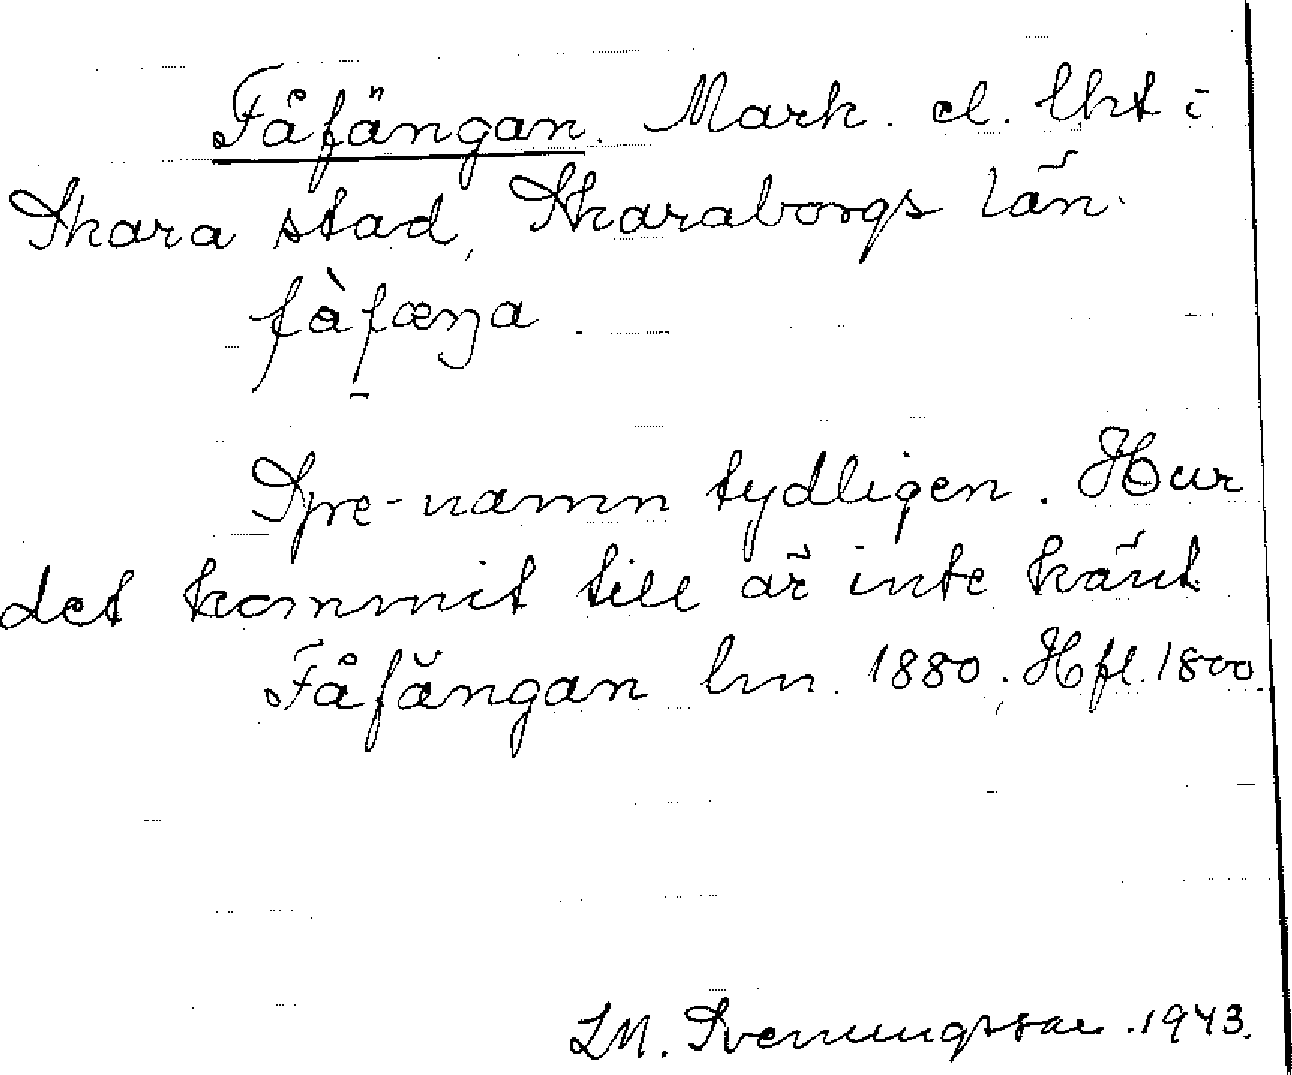 Fåfängan. Mark. el. lht i
Skara stad, Skaraborgs län.
fàfæŋa
Spe-namn tydligen. Hur
det kommit till är inte känt.
Fåfängan lm. 1880. Hfl. 1800.
LM. Svenungsson. 1943.